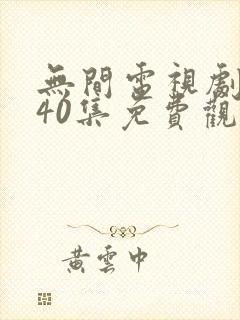 無間電視劇
40集免費觀
黃雲中